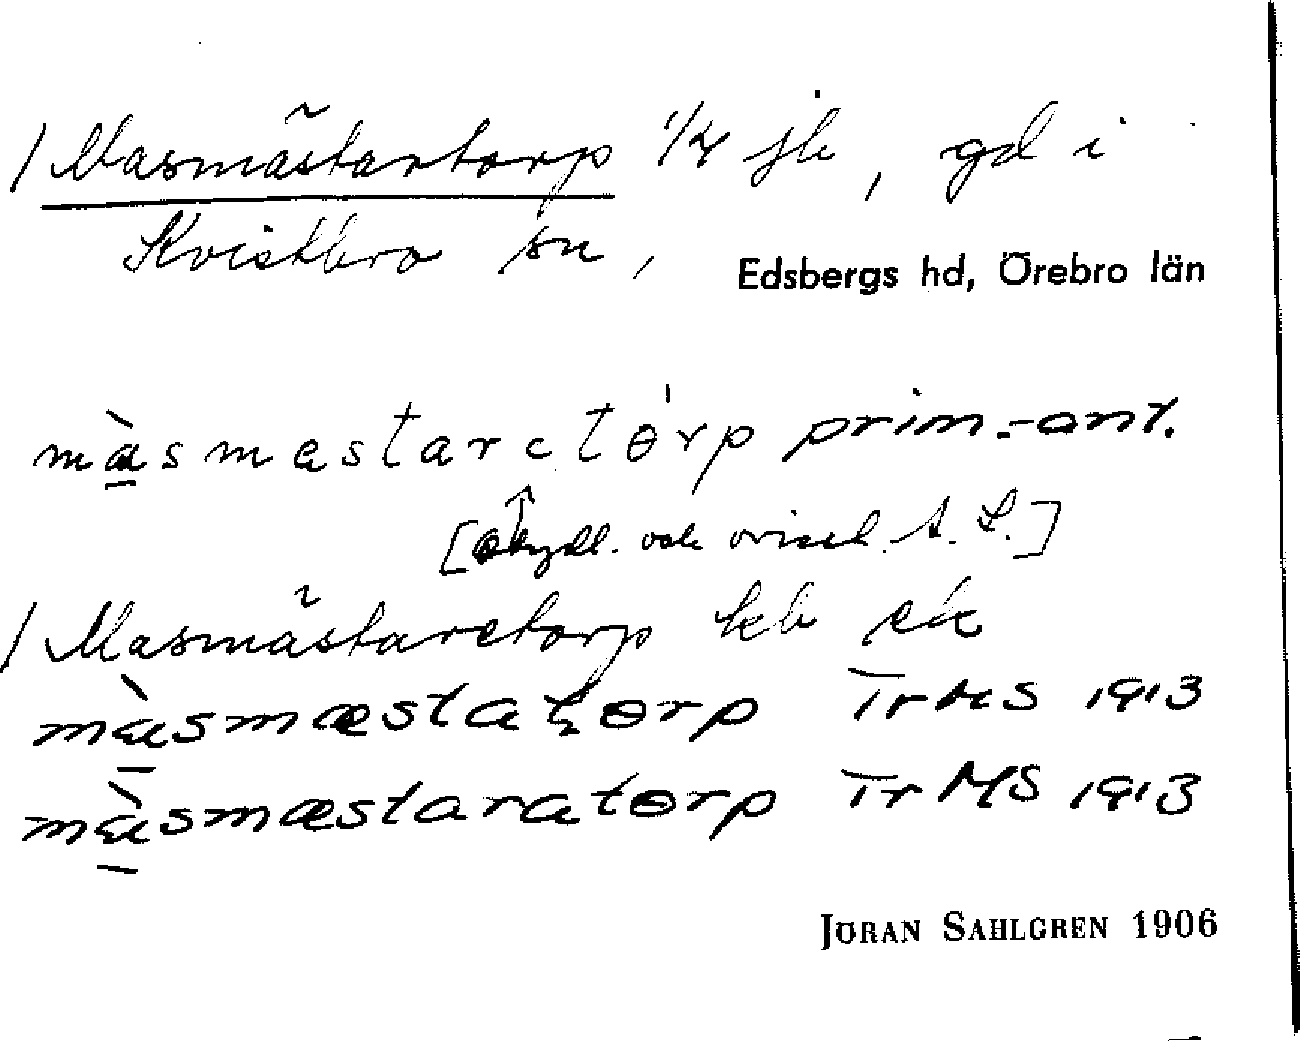 / Masmästartorp 1/4 jk, gd i
Kvistbro sn,
Edsbergs hd, Örebro län
màsmæstarетөrp prim.-ant.
[otydl. vok
/ Masmästaretorp kb ek
màsmæstatөrp TrMS 1913
màsmæstaratөrp TrMS 1913
JÖRAN SAHLGREN 1906